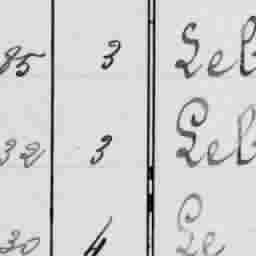 85 3 Leb
32 3 Leb
30 4 Le